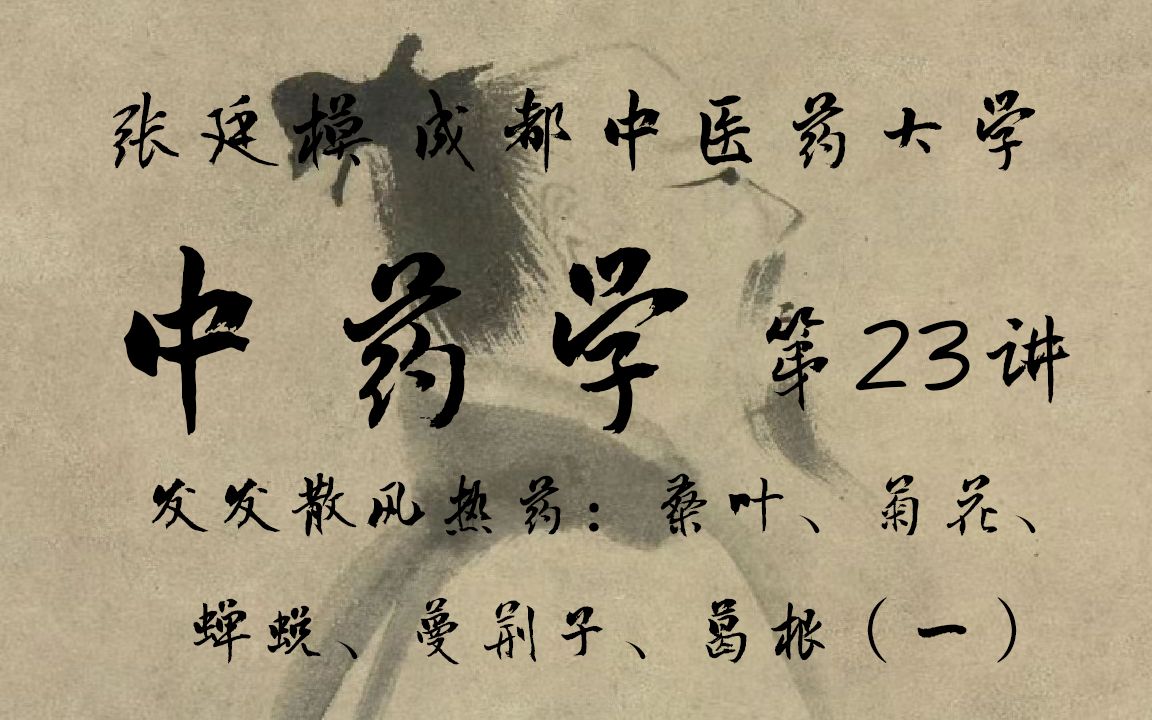 张廷模成都中医药大学
中药学 第23讲
发发散风热药：桑叶、菊花、
蝉蜕、蔓荆子、葛根（一）